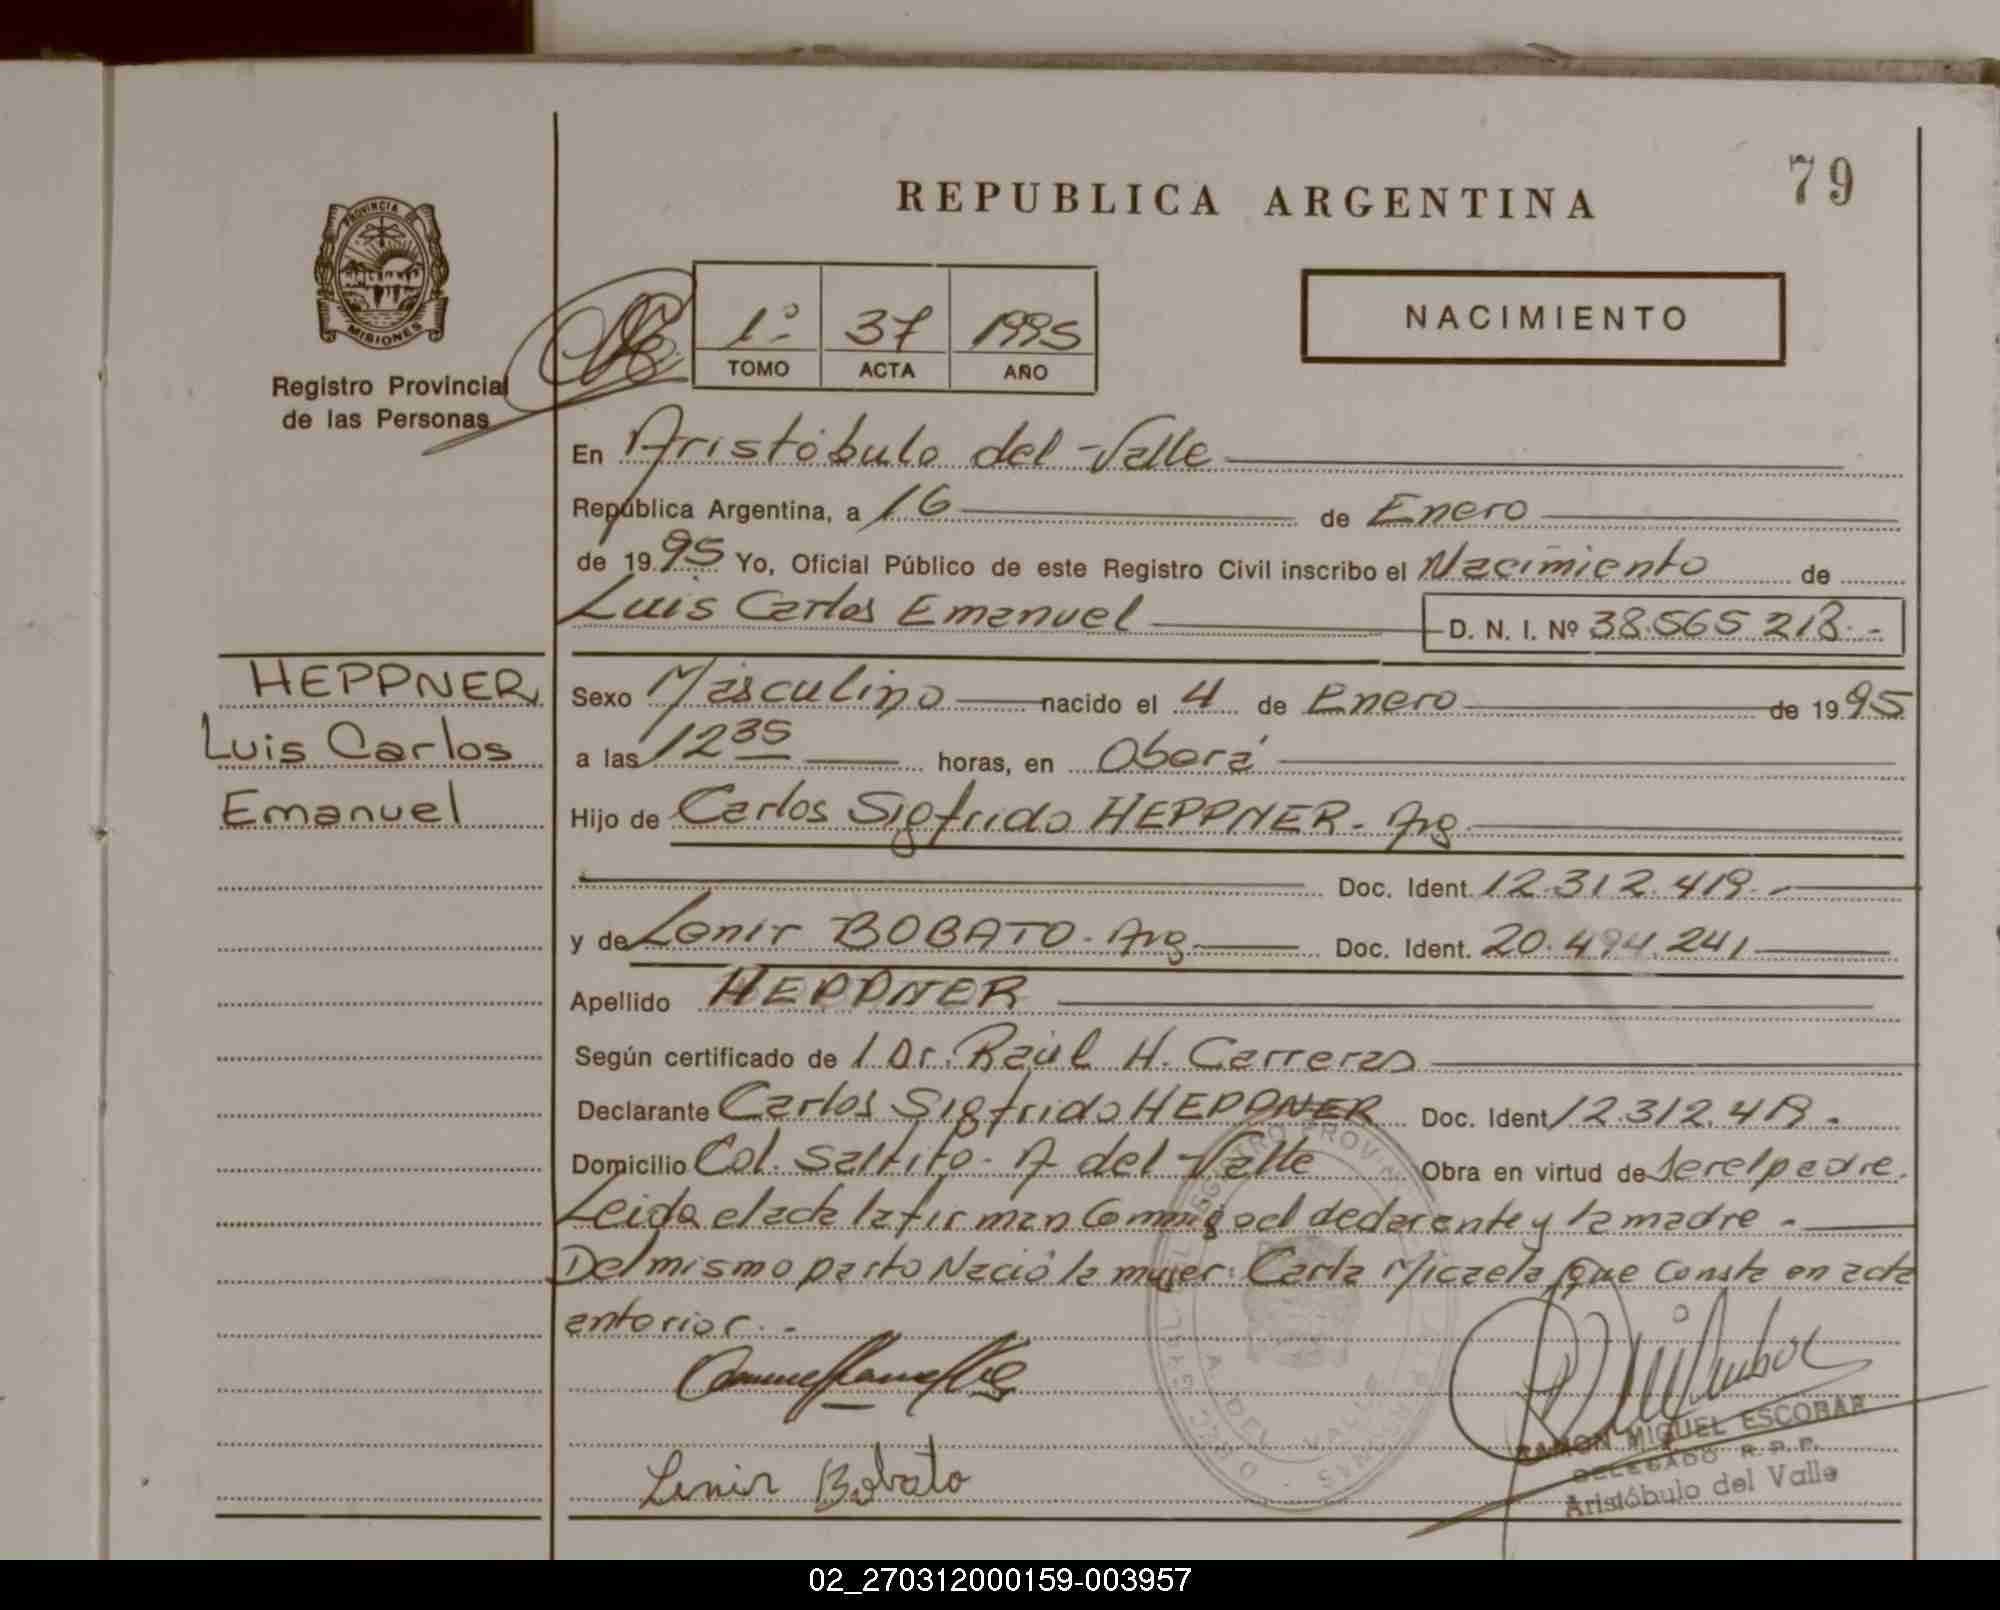 79
REPUBLICA ARGENTINA
PROVINCIA DE
MISIONES
Registro Provincial
de las Personas
1º 37 1995
TOMO ACTA AÑO
NACIMIENTO
En Aristóbulo del Valle
República Argentina, a 16 de Enero
de 1995 Yo, Oficial Público de este Registro Civil inscribo el Nacimiento de
Luis Carlos Emanuel D. N. I. Nº 38.565.218.-
HEPPNER
Luis Carlos
Emanuel
Sexo Masculino nacido el 4 de Enero de 1995
a las 12 35 horas, en Oberá
Hijo de Carlos Sigfrido HEPPNER - Arg.
Doc. Ident. 12.312.419.-
y de Lenir BOBATO - Arg. Doc. Ident. 20.494.241
Apellido HEPPNER
Según certificado de l Dr. Raúl H. Carreras
Declarante Carlos Sigfrido HEPPNER Doc. Ident. 12.312.419.-
Domicilio Col. Saltito - A del Valle Obra en virtud de ser el padre.
Leida el acta la firman Conmigo el declarante y la madre.-
Del mismo parto Nació la mujer: Carla Micaela, que consta en acta
anterior.-
Lenir Bobato
RAMON MIGUEL ESCOBAR
DELEGADO R.P.P.
Aristóbulo del Valle
02_270312000159-003957